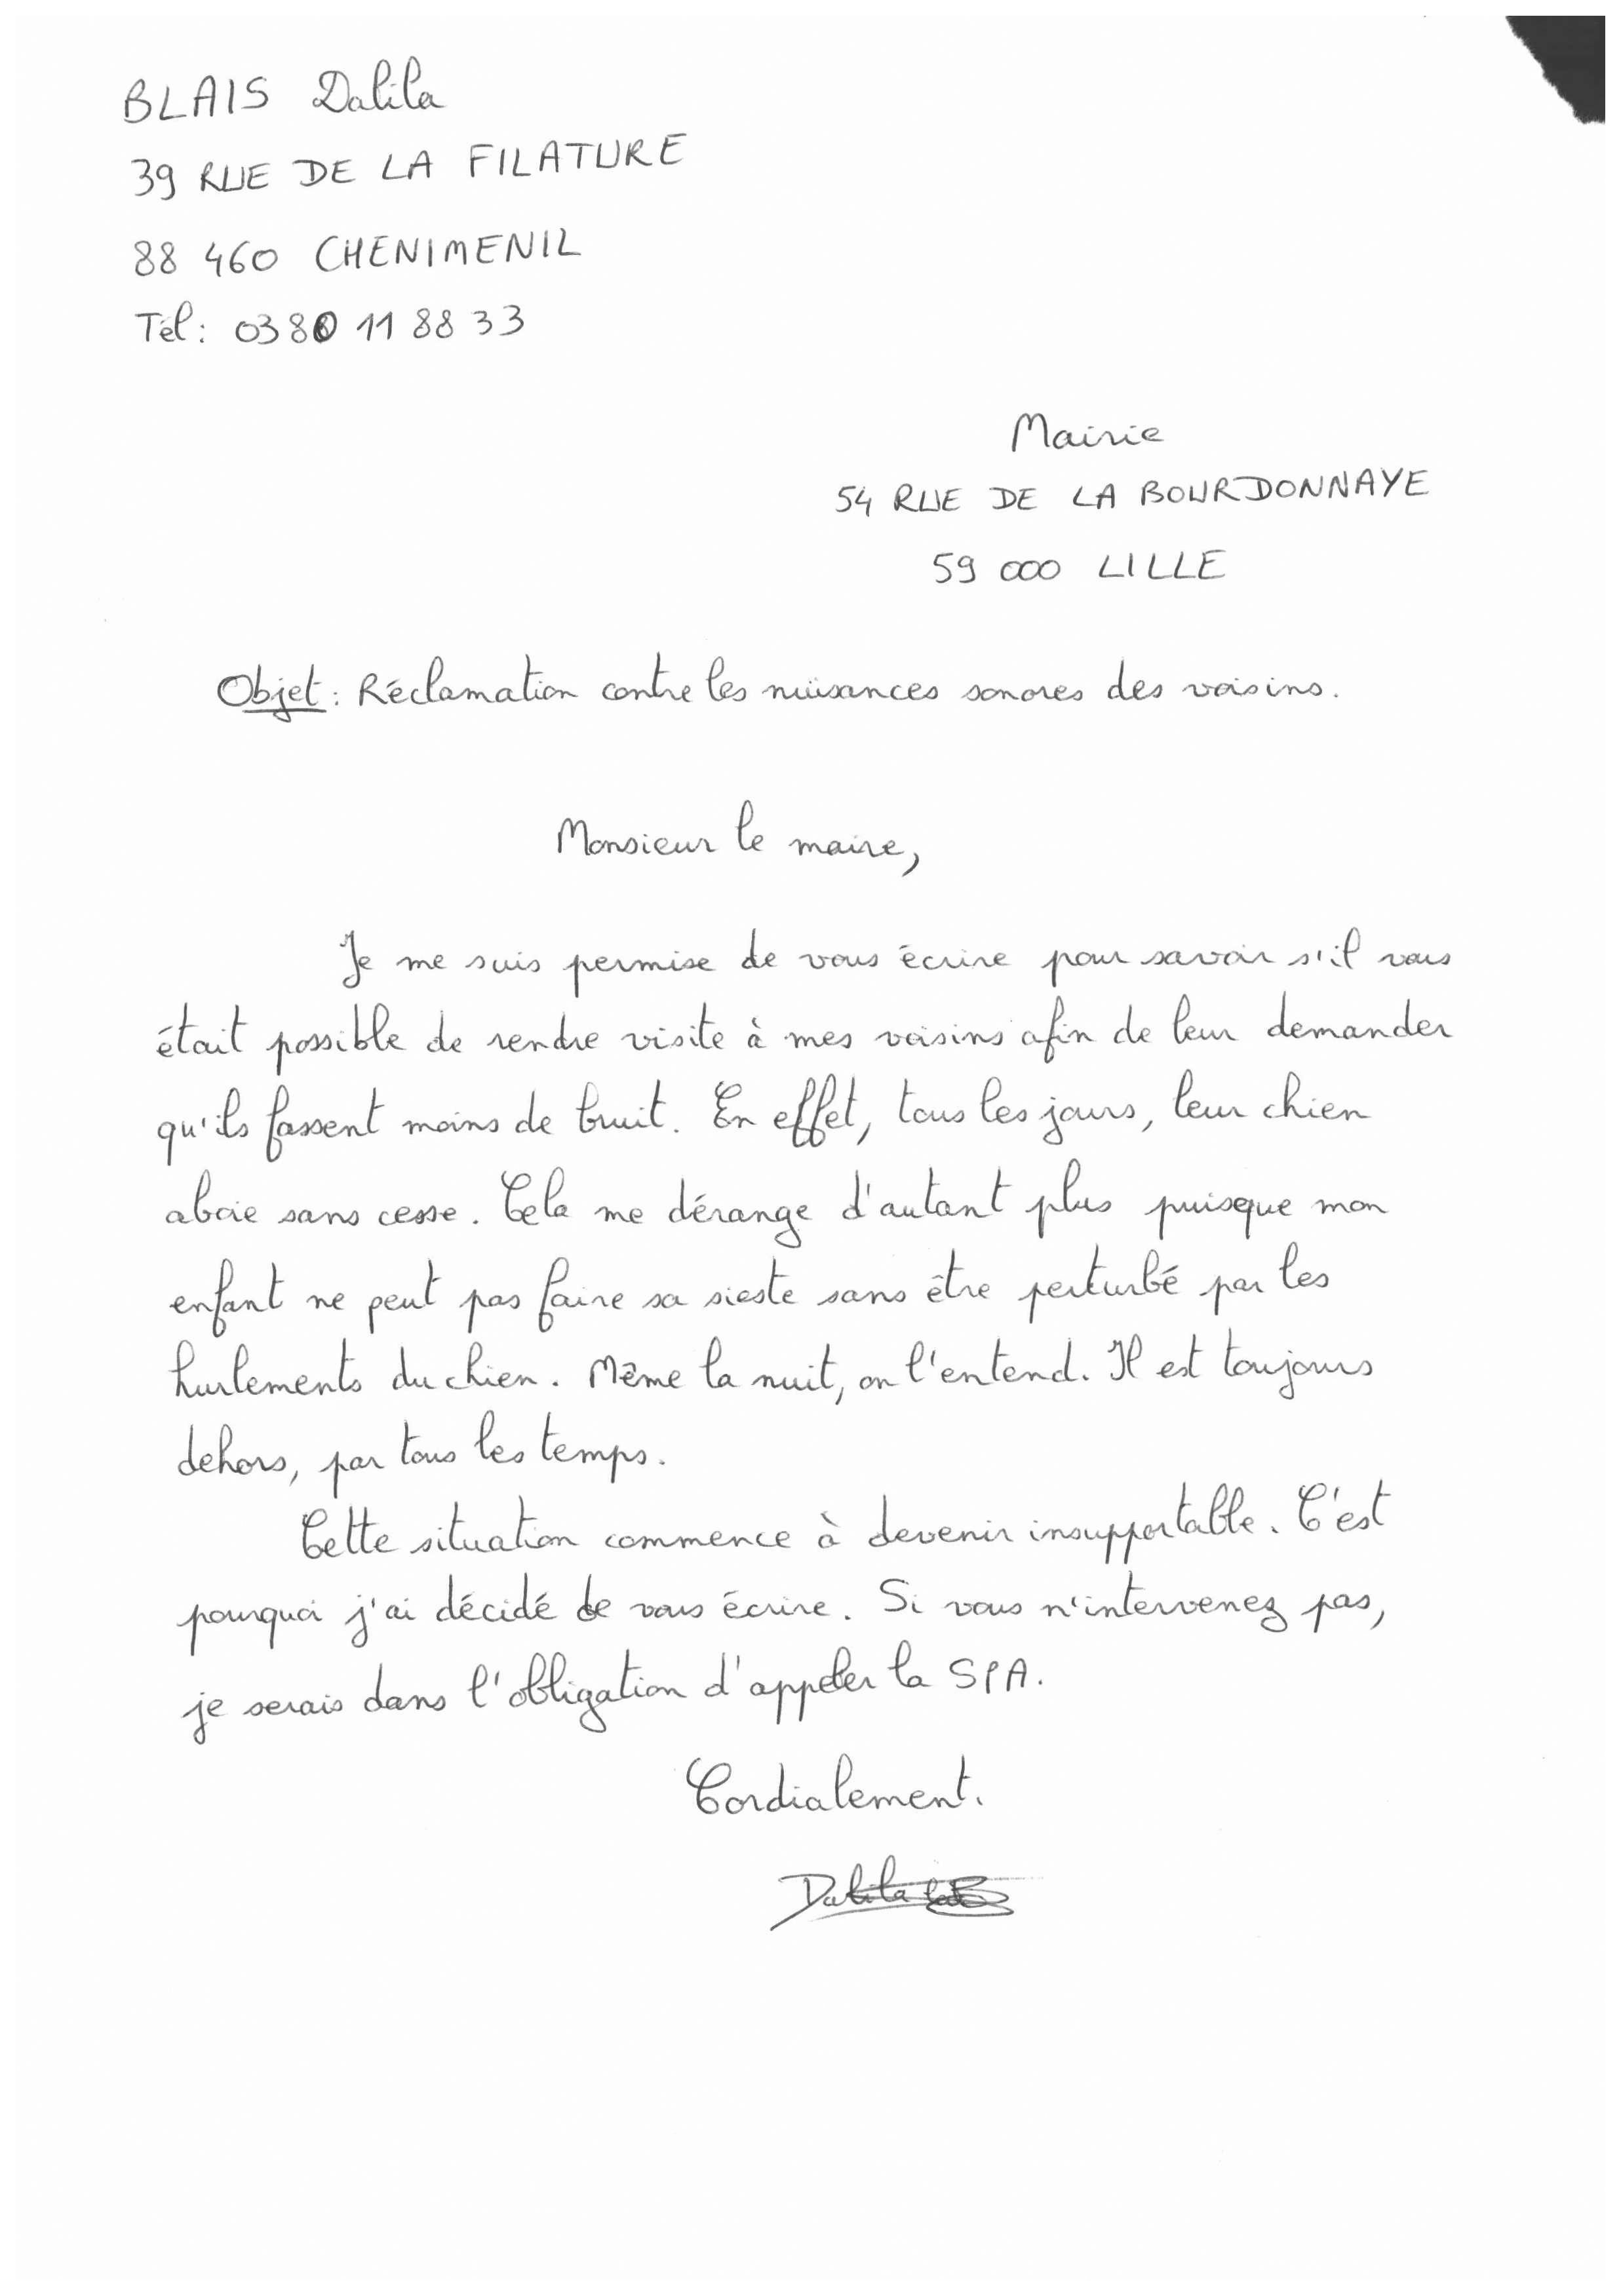 BLAIS Dalila
39 RUE DE LA FILATURE
88 460 CHENIMENIL
Tél: 0380 11 88 33
Mairie
54 RUE DE LA BOURDONNAYE
59 000 LILLE
Objet: Réclamation contre les nuisances sonores des voisins.
Monsieur le maire,
Je me suis permise de vous écrire pour savoir s'il vous
était possible de rendre visite à mes voisins afin de leur demander
qu'ils fassent moins de bruit. En effet, tous les jours, leur chien
aboie sans cesse. Cela me dérange d'autant plus puisque mon
enfant ne peut pas faire sa sieste sans être perturbé par les
hurlements du chien. Même la nuit, on l'entend. Il est toujours
dehors, par tous les temps.
Cette situation commence à devenir insupportable. C'est
pourquoi j'ai décidé de vous écrire. Si vous n'intervenez pas,
je serais dans l'obligation d'appeler la SPA.
Cordialement.
Dalila